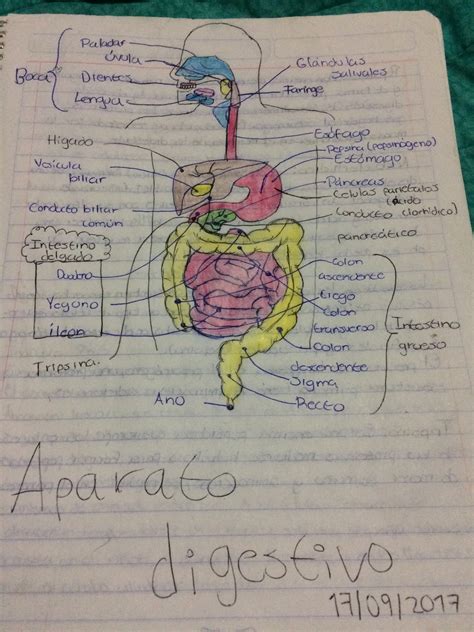 Boca
Paladar
úvula
Dientes
Lengua
Glándulas
salivales
Faringe
Esófago
Hígado
Vesícula
biliar
Conducto biliar
común
Intestino
delgado
Duodeno
Yeyuno
íleon
Tripsina.
Pepsina (pepsinógeno)
Estómago
Páncreas
Celulas parietales
(ácido
clorhídrico)
Conducto
pancreático
Colon
ascendente
Ciego
Colon
transverso
Colon
descendente
Sigma
Recto
Intestino
grueso
Ano
Aparato
digestivo
17/09/2017